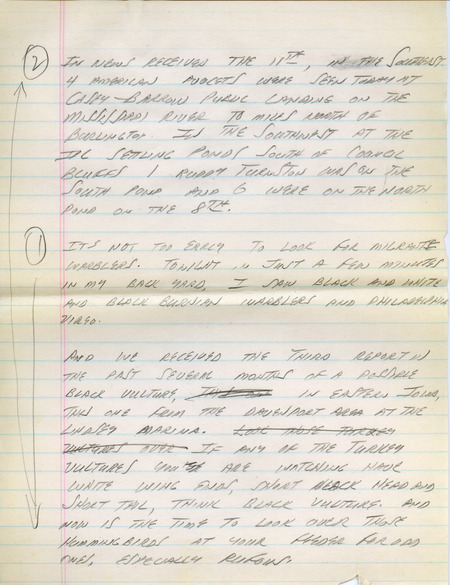 ② IN NEWS RECEIVED THE 11TH, IN THE SOUTHEAST
4 AMERICAN AVOCETS WERE SEEN TODAY AT
CASEY BARROW PUBLIC LANDING ON THE
MISSISSIPPI RIVER 10 MILES NORTH OF
BURLINGTON. IN THE SOUTHWEST AT THE
IPL SETTLING PONDS SOUTH OF COUNCIL
BLUFFS 1 RUDDY TURNSTONE WAS ON THE
SOUTH POND AND 6 WERE ON THE NORTH
POND ON THE 8TH.
① IT'S NOT TOO EARLY TO LOOK FOR MIGRANT
WARBLERS. TONIGHT IN JUST A FEW MINUTES
IN MY BACK YARD, I SAW BLACK AND WHITE
AND BLACKBURNIAN WARBLERS AND PHILADELPHIA
VIREO.
AND WE RECEIVED THE THIRD REPORT IN
THE PAST SEVERAL MONTHS OF A POSSIBLE
BLACK VULTURE, IN EASTERN IOWA,
THIS ONE FROM THE DAVENPORT AREA AT THE
LINDSAY MARINA. LOOK THOSE TURKEY
VULTURES OVER IF ANY OF THE TURKEY
VULTURES YOU ARE WATCHING HAVE
WHITE WING ENDS, SHORT BLACK HEAD AND
SHORT TAIL, THINK BLACK VULTURE. AND
NOW IS THE TIME TO LOOK OVER THOSE
HUMMINGBIRDS AT YOUR FEEDER FOR ODD
ONES, ESPECIALLY RUFOUS.